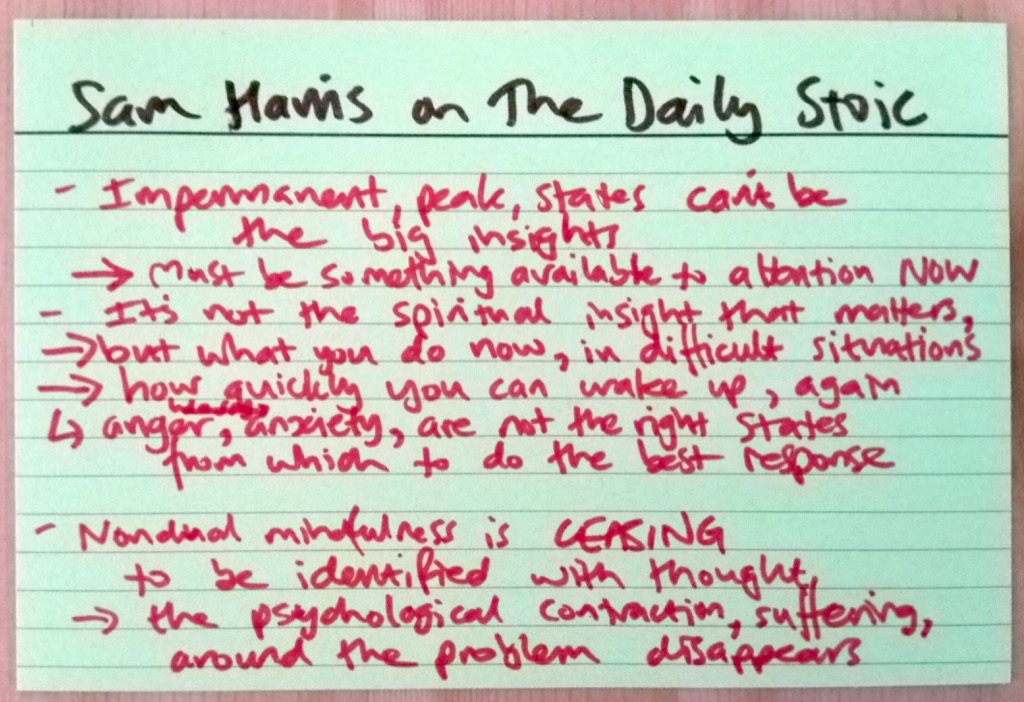 Sam Harris on The Daily Stoic
- Impermanent, peak, states can't be
the big insights
→ Must be something available to attention NOW
- It's not the spiritual insight that matters,
→ but what you do now, in difficult situations
→ how quickly you can wake up, again
↳ anger, anxiety, are not the right states
from which to do the best response
- Nondual mindfulness is CEASING
to be identified with thought,
→ the psychological contraction, suffering,
around the problem disappears